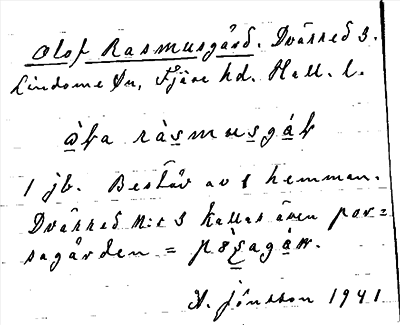 Olof Rasmusgård. Dvärred 3.
Lindome sn, Fjäre hd. Hall. l.
rasmusgå
1 jb. Består av 1 hemman.
Dvärred N:r 3 kallas även por=
sagården =
N. Jönsson 1941